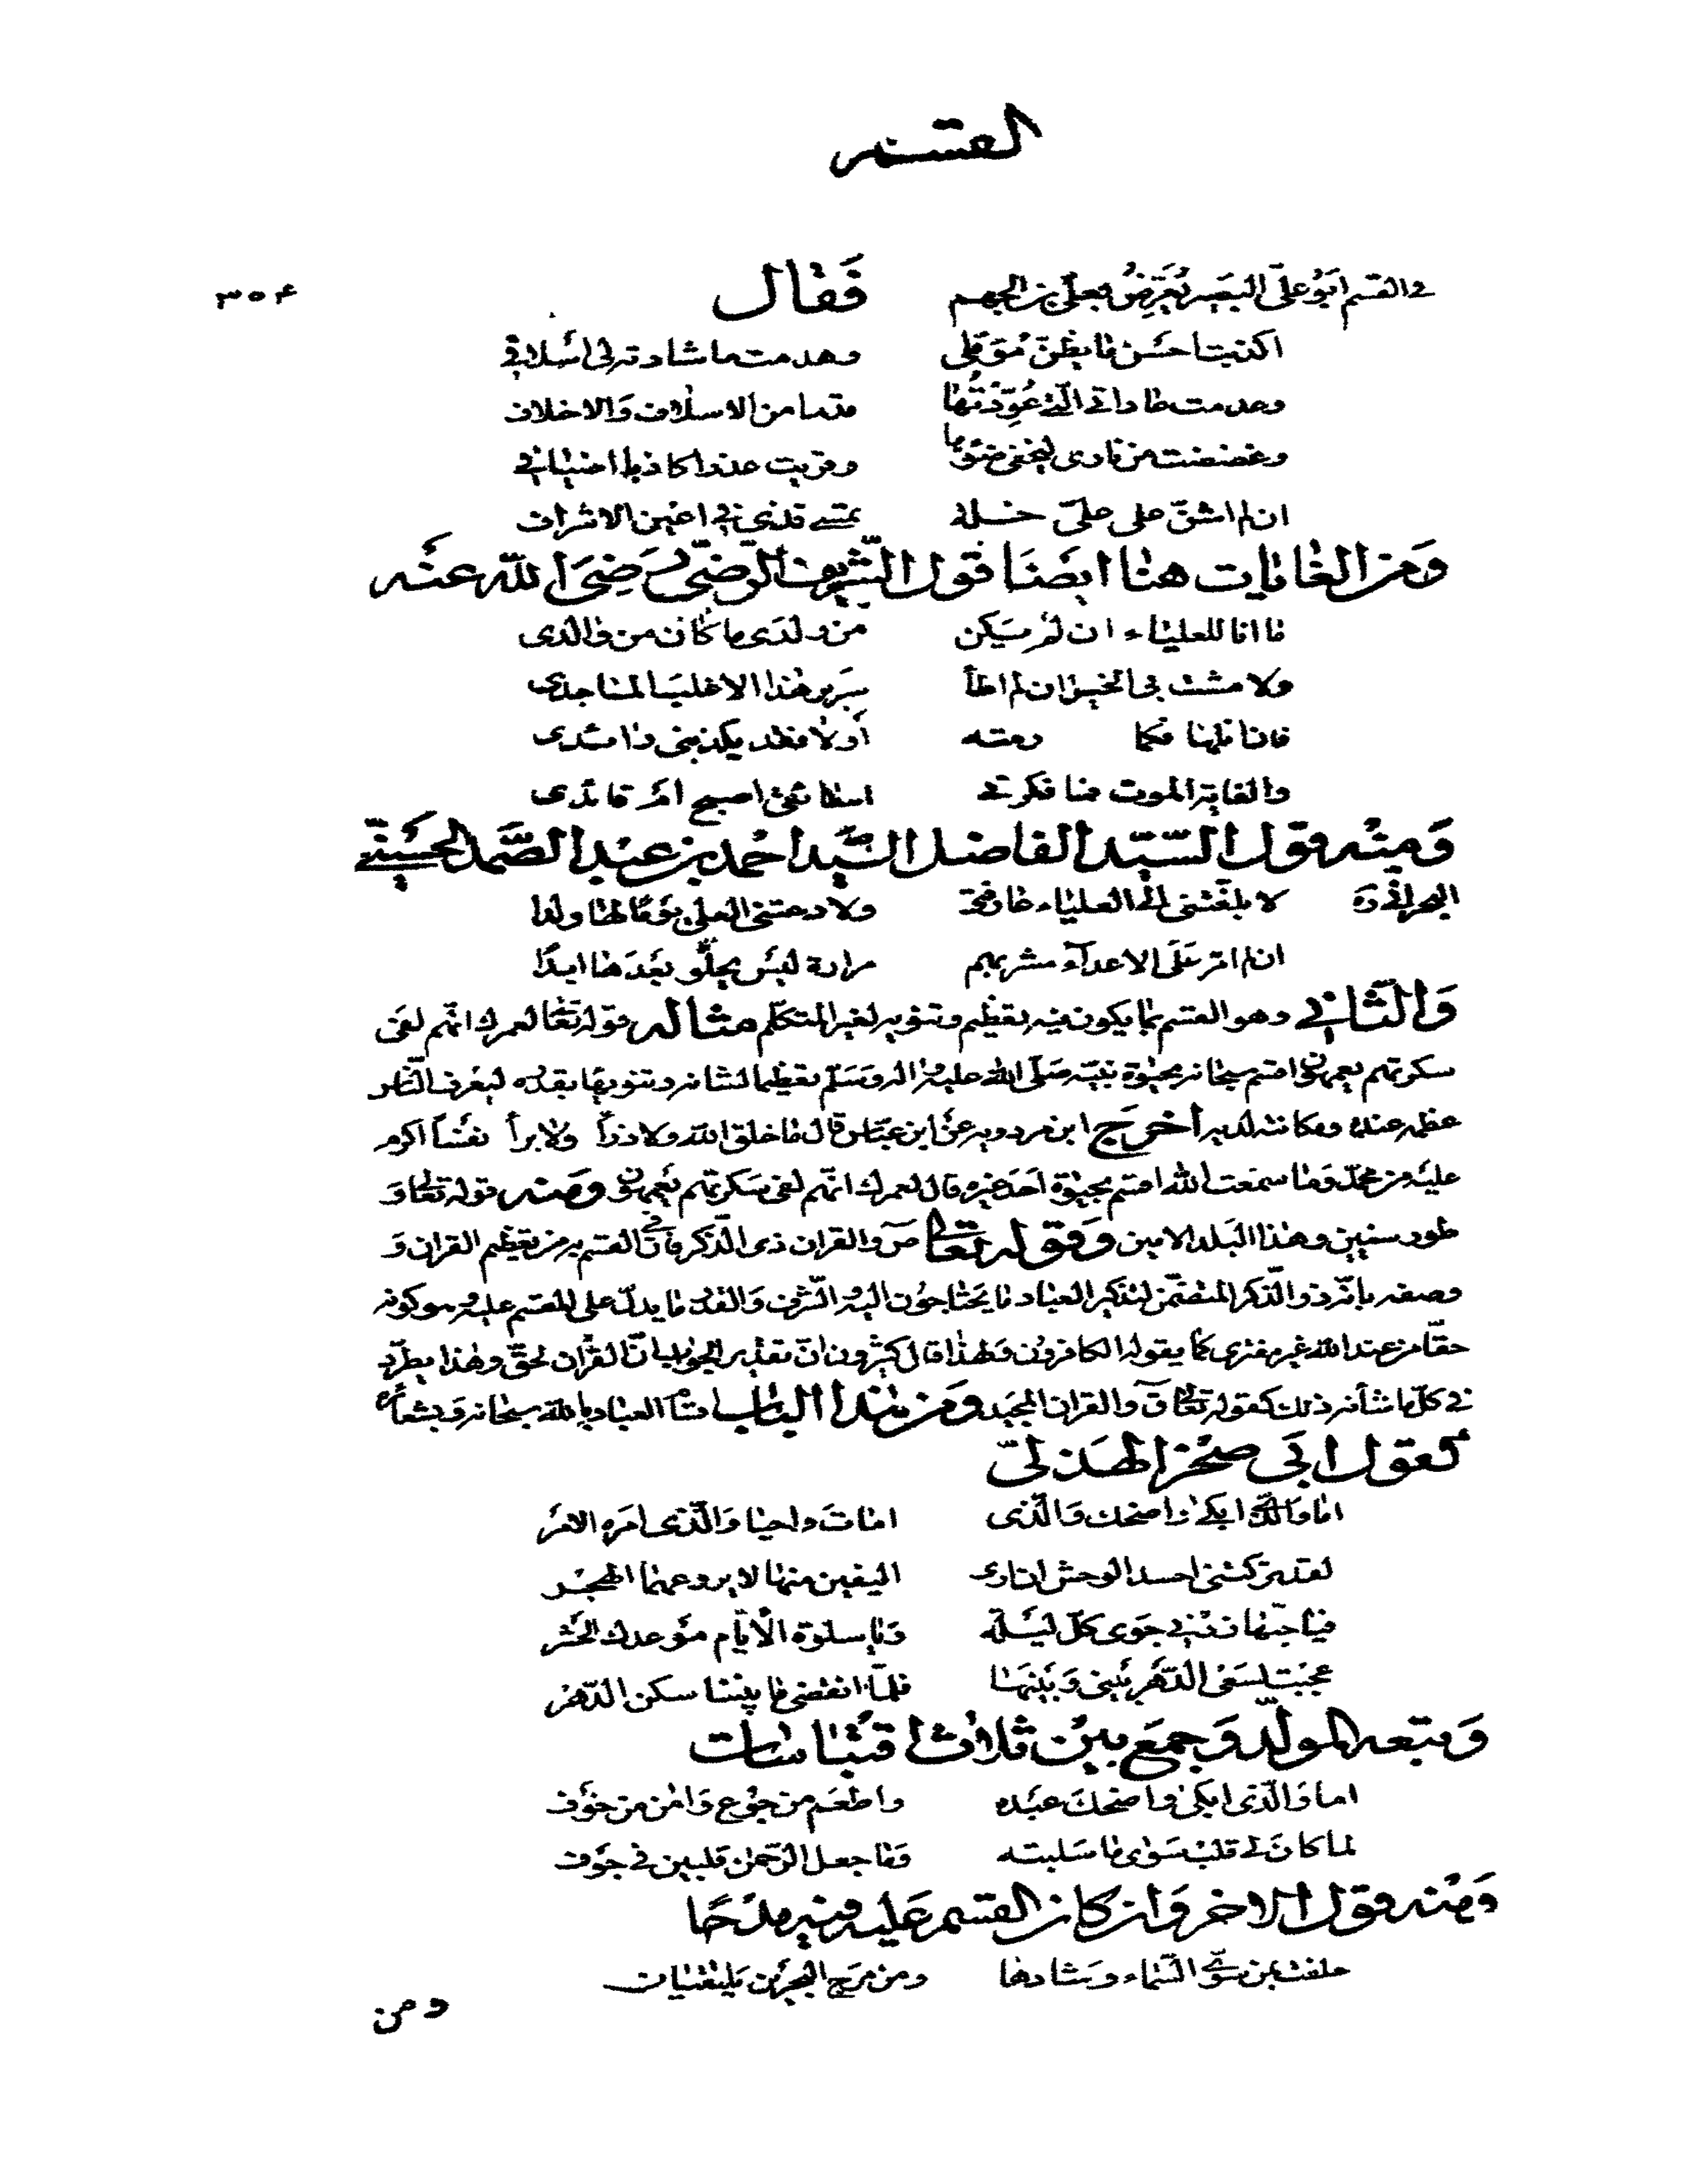 القسم
في القسم ابو علي البصير يعرض بعلي بن الجهم فقال
٣٥٤
اكذبت احسن ما يظن مؤملي وهدمت ما شادته لي اسلافي
وعدمت عاداتي التي عودتها قدما من الاسلاف والاخلاف
وغضضت من ناري ليخفى ضوءها وقريت عذرا كاذبا اضيافي
ان لم اشن على علي خلة تمسي قذى في اعين الاشراف
ومن الغايات هنا ايضا قول الشريف الرضي رضي الله عنه
ما انا للعلياء ان لم يكن من ولدي ما كان من والدي
ولا مشت بي الخيل ان لم اطأ سرير هذا الاغلب الماجد
فان انلها فكما رمته أولا فقد يكذبني رائدي
والغاية الموت فما فكرتي اسائقي اصبح ام قائدي
ومنه قول السيد الفاضل السيد احمد بن عبد الصمد الحسيني
البحراني ره لا بلغتني الى العلياء عارفتي ولا دعتني العلى يوما لها ولدا
ان لم امر على الاعداء مشربهم مرارة ليس يحلو بعدها ابدا
والثاني وهو القسم بما يكون فيه تعظيم وتنويه لغير المتكلم مثاله قوله تعالى لعمرك انهم لفي
سكرتهم يعمهون اقسم سبحانه بحيوة نبيه صلى الله عليه واله وسلم تعظيما لشانه وتنويها بقدره ليعرف الناس
عظمه عنده ومكانته لديه أخرج ابن مردويه عن ابن عباس قال ما خلق الله ولا ذرأ ولا برأ نفسا اكرم
عليه من محمد وما سمعت الله اقسم بحيوة احد غيره قال لعمرك انهم لفي سكرتهم يعمهون ومنه قوله تعالى و
طور سنين وهذا البلد الامين وقوله تعالى ص والقران ذي الذكر فان في القسم به من تعظيم القران و
وصفه بانه ذو الذكر المتضمن لتذكير العباد ما يحتاجون اليه والشرف والقدر ما يدل على المقسم عليه وهو كونه
حقا من عند الله غير مفترى كما يقوله الكافرون ولهذا قال كثيرون ان تقدير الجواب ان القران لحق وهذا يطرد
في كل ما شأنه ذلك كقوله تعالى ق والقران المجيد ومن هذا الباب اقسام العباد بالله سبحانه وبشعائره
كقول ابي صخر الهذلي
اما والذي ابكى واضحك والذي امات واحيا والذي امره الامر
لقد تركتني احسد الوحش ان ارى اليفين منها لا يروعهما الهجر
فيا حبها زدني جوى كل ليلة ويا سلوة الأيام موعدك الحشر
عجبت لسعي الدهر بيني وبينها فلما انقضى ما بيننا سكن الدهر
وتبعه المولد وجمع بين ثلاث اقتباسات
اما والذي ابكى واضحك عبده واطعم من جوع وامن من خوف
لما كان لي قلب سوى ما سلبته وما جعل الرحمن قلبين في جوف
ومنه قول الاخر وان كان القسم عليه فيه مدحا
حلفت بمن سوى السماء وشادها ومن مرج البحرين يلتقيان
ومن